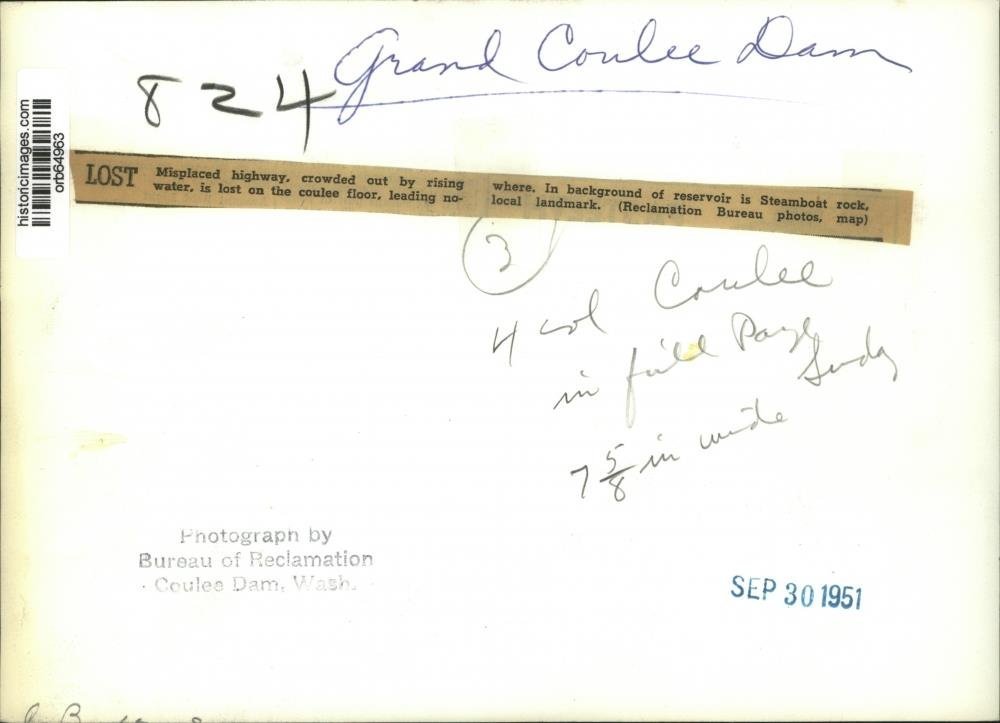 Grand Coulee Dam
824
historicimages.com
orb64963
LOST
Misplaced highway, crowded out by rising
water, is lost on the coulee floor, leading no-
where. In background of reservoir is Steamboat rock,
local landmark. (Reclamation Bureau photos, map)
3
4 col Coulee
in full Page
Sunday
7 5/8 in wide
Photograph by
Bureau of Reclamation
Coulee Dam, Wash.
SEP 30 1951